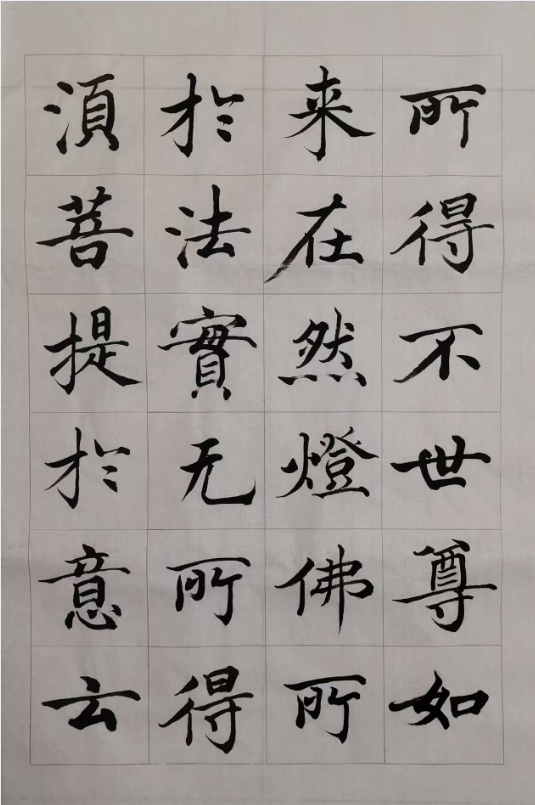 所得不世尊如
来在然燈佛所
於法實无所得
須菩提於意云